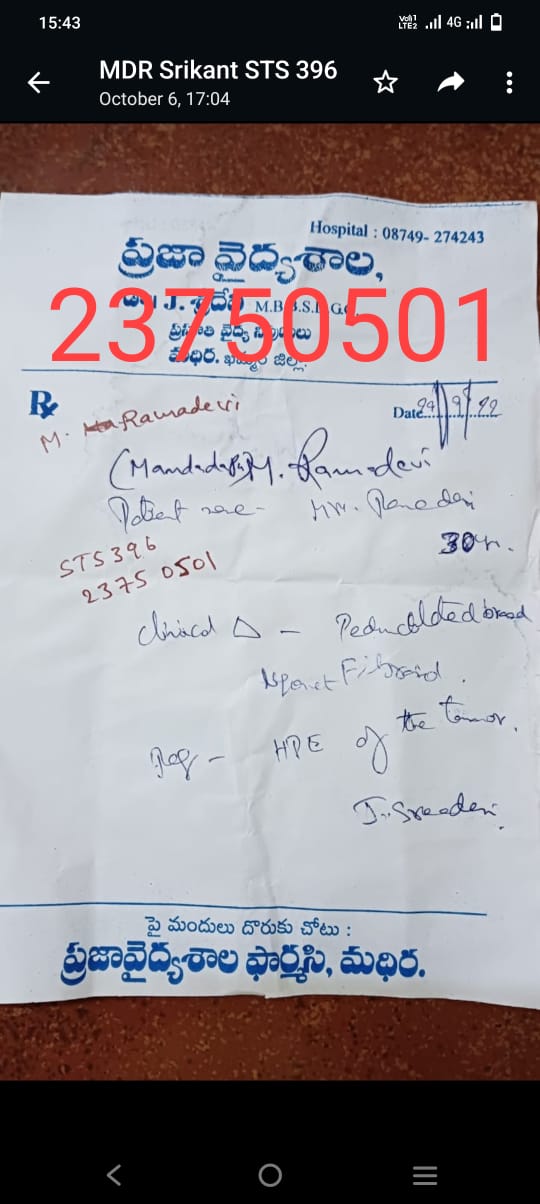 15:43
Vo))1 LTE2 4G
MDR Srikant STS 396
October 6, 17:04
Hospital : 08749- 274243
ప్రజా వైద్యశాల,
J. శ్రీదేవి M.B.B.S.D.G.O.
23750501
మధిర. ఖమ్మం జిల్లా.
Rx
M. Ramadevi
Date 29/9/22
M. Ramadevi
Patient name - Mrs. Ramadevi
30yr.
STS 396
2375 0501
Clinical Δ - Pedunculated broad
ligament Fibroid.
Req - HPE of the tumor.
J. Sreedevi.
పై మందులు దొరుకు చోటు :
ప్రజావైద్యశాల ఫార్మసి, మధిర.